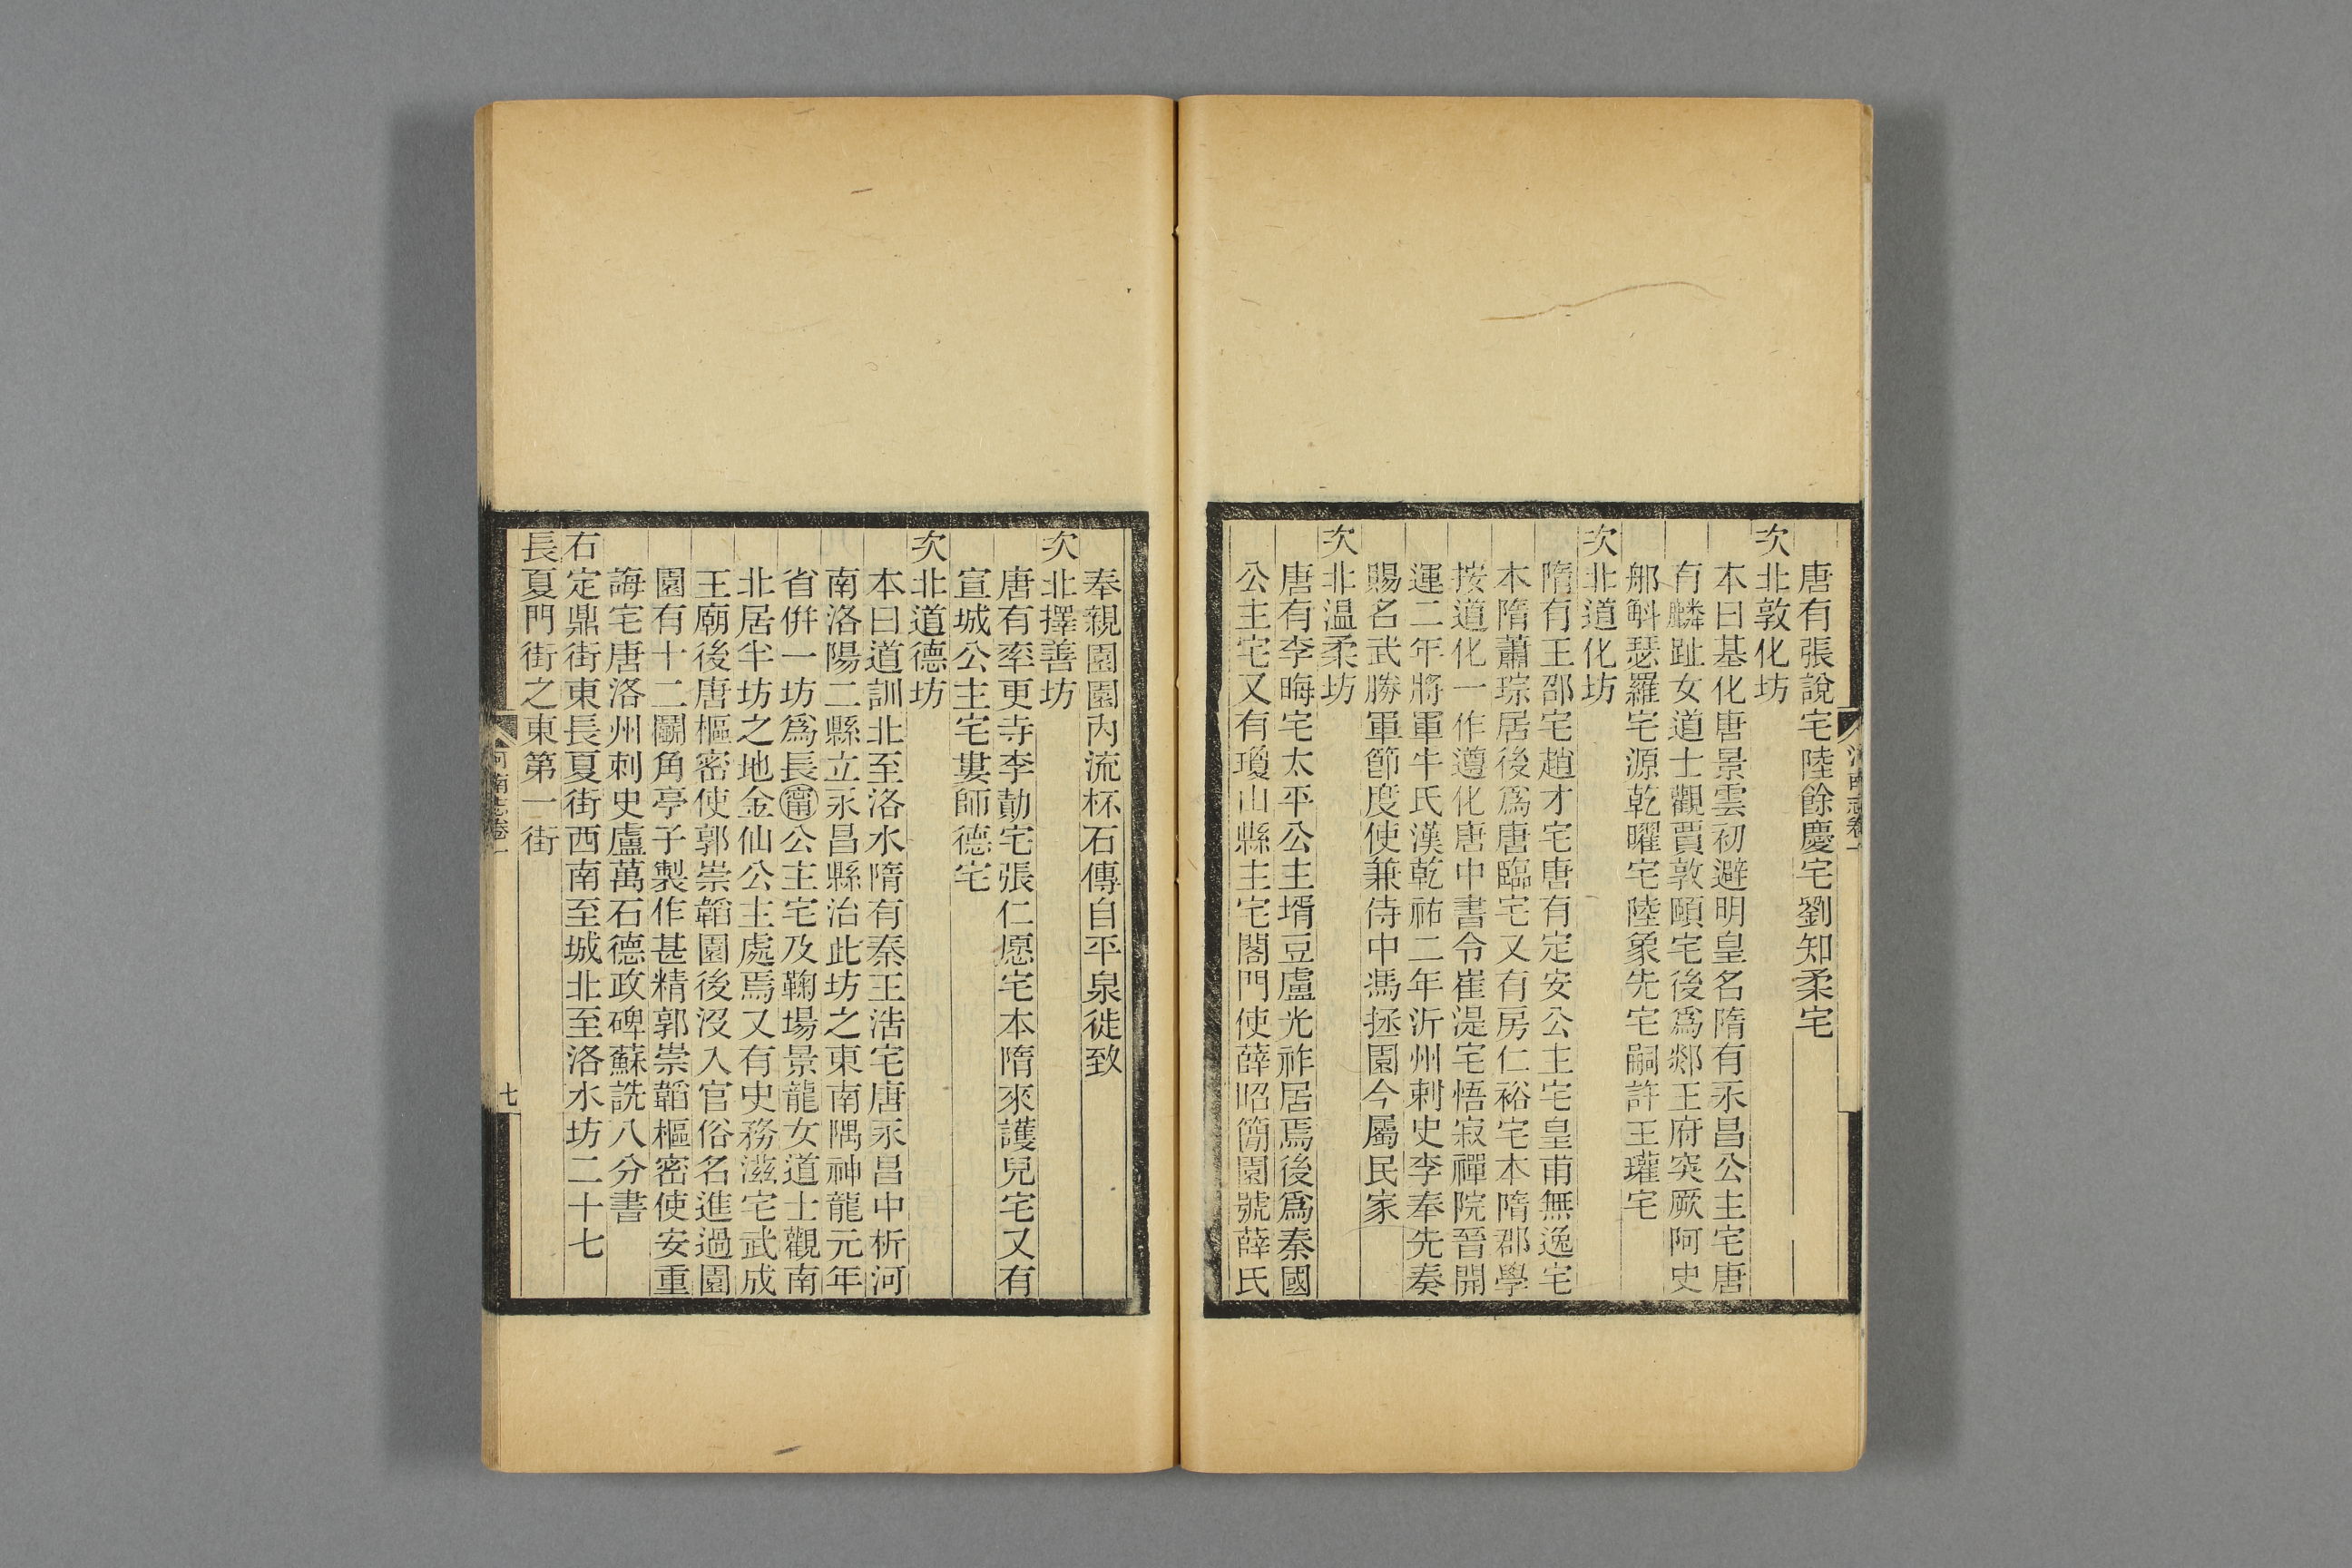 唐有張說宅陸餘慶宅劉知柔宅
次北敦化坊
本曰基化唐景雲初避明皇名隋有永昌公主宅唐
有麟趾女道士觀賈敦頤宅後爲郯王府突厥阿史
那斛瑟羅宅源乾曜宅陸象先宅嗣許王瓘宅
次北道化坊
隋有王邵宅趙才宅唐有定安公主宅皇甫無逸宅
本隋蕭琮居後爲唐臨宅又有房仁裕宅本隋郡學
按道化一作遵化唐中書令崔湜宅悟寂禪院晉開
運二年將軍牛氏漢乾祐二年沂州刺史李奉先奏
賜名武勝軍節度使兼侍中馮拯園今屬民家
次北温柔坊
唐有李晦宅太平公主壻豆盧光祚居焉後爲秦國
公主宅又有瓊山縣主宅閣門使薛昭簡園號薛氏
奉親園園内流杯石傳自平泉徙致
次北擇善坊
唐有率更寺李勣宅張仁愿宅本隋來護兒宅又有
宣城公主宅婁師德宅
次北道德坊
本曰道訓北至洛水隋有秦王浩宅唐永昌中析河
南洛陽二縣立永昌縣治此坊之東南隅神龍元年
省併一坊爲長甯公主宅及鞠場景龍女道士觀南
北居半坊之地金仙公主處焉又有史務滋宅武成
王廟後唐樞密使郭崇韜園後没入官俗名進過園
園有十二鬭角亭子製作甚精郭崇韜樞密使安重
誨宅唐洛州刺史盧萬石德政碑蘇詵八分書
右定鼎街東長夏街西南至城北至洛水坊二十七
長夏門街之東第一街
河南志卷一
七